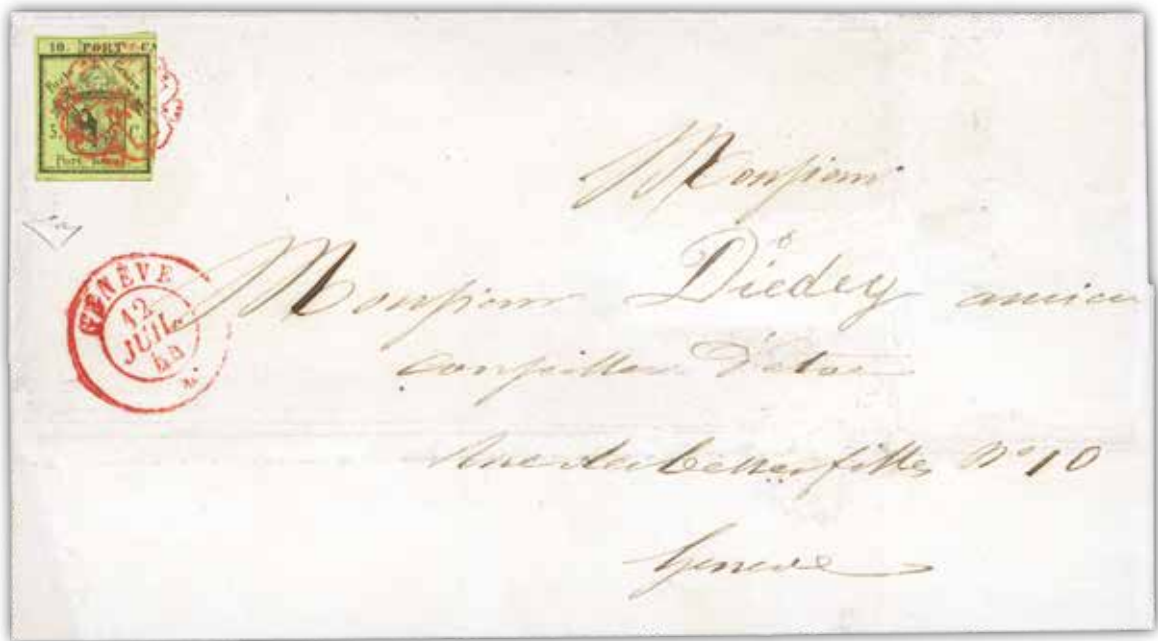 10. PORT CA
5. C.
Port Local
GENÈVE
12
JUIL.
Monsieur
Monsieur Diedey ancien
conseiller d'etat
Rue des belles filles No 10
Geneve